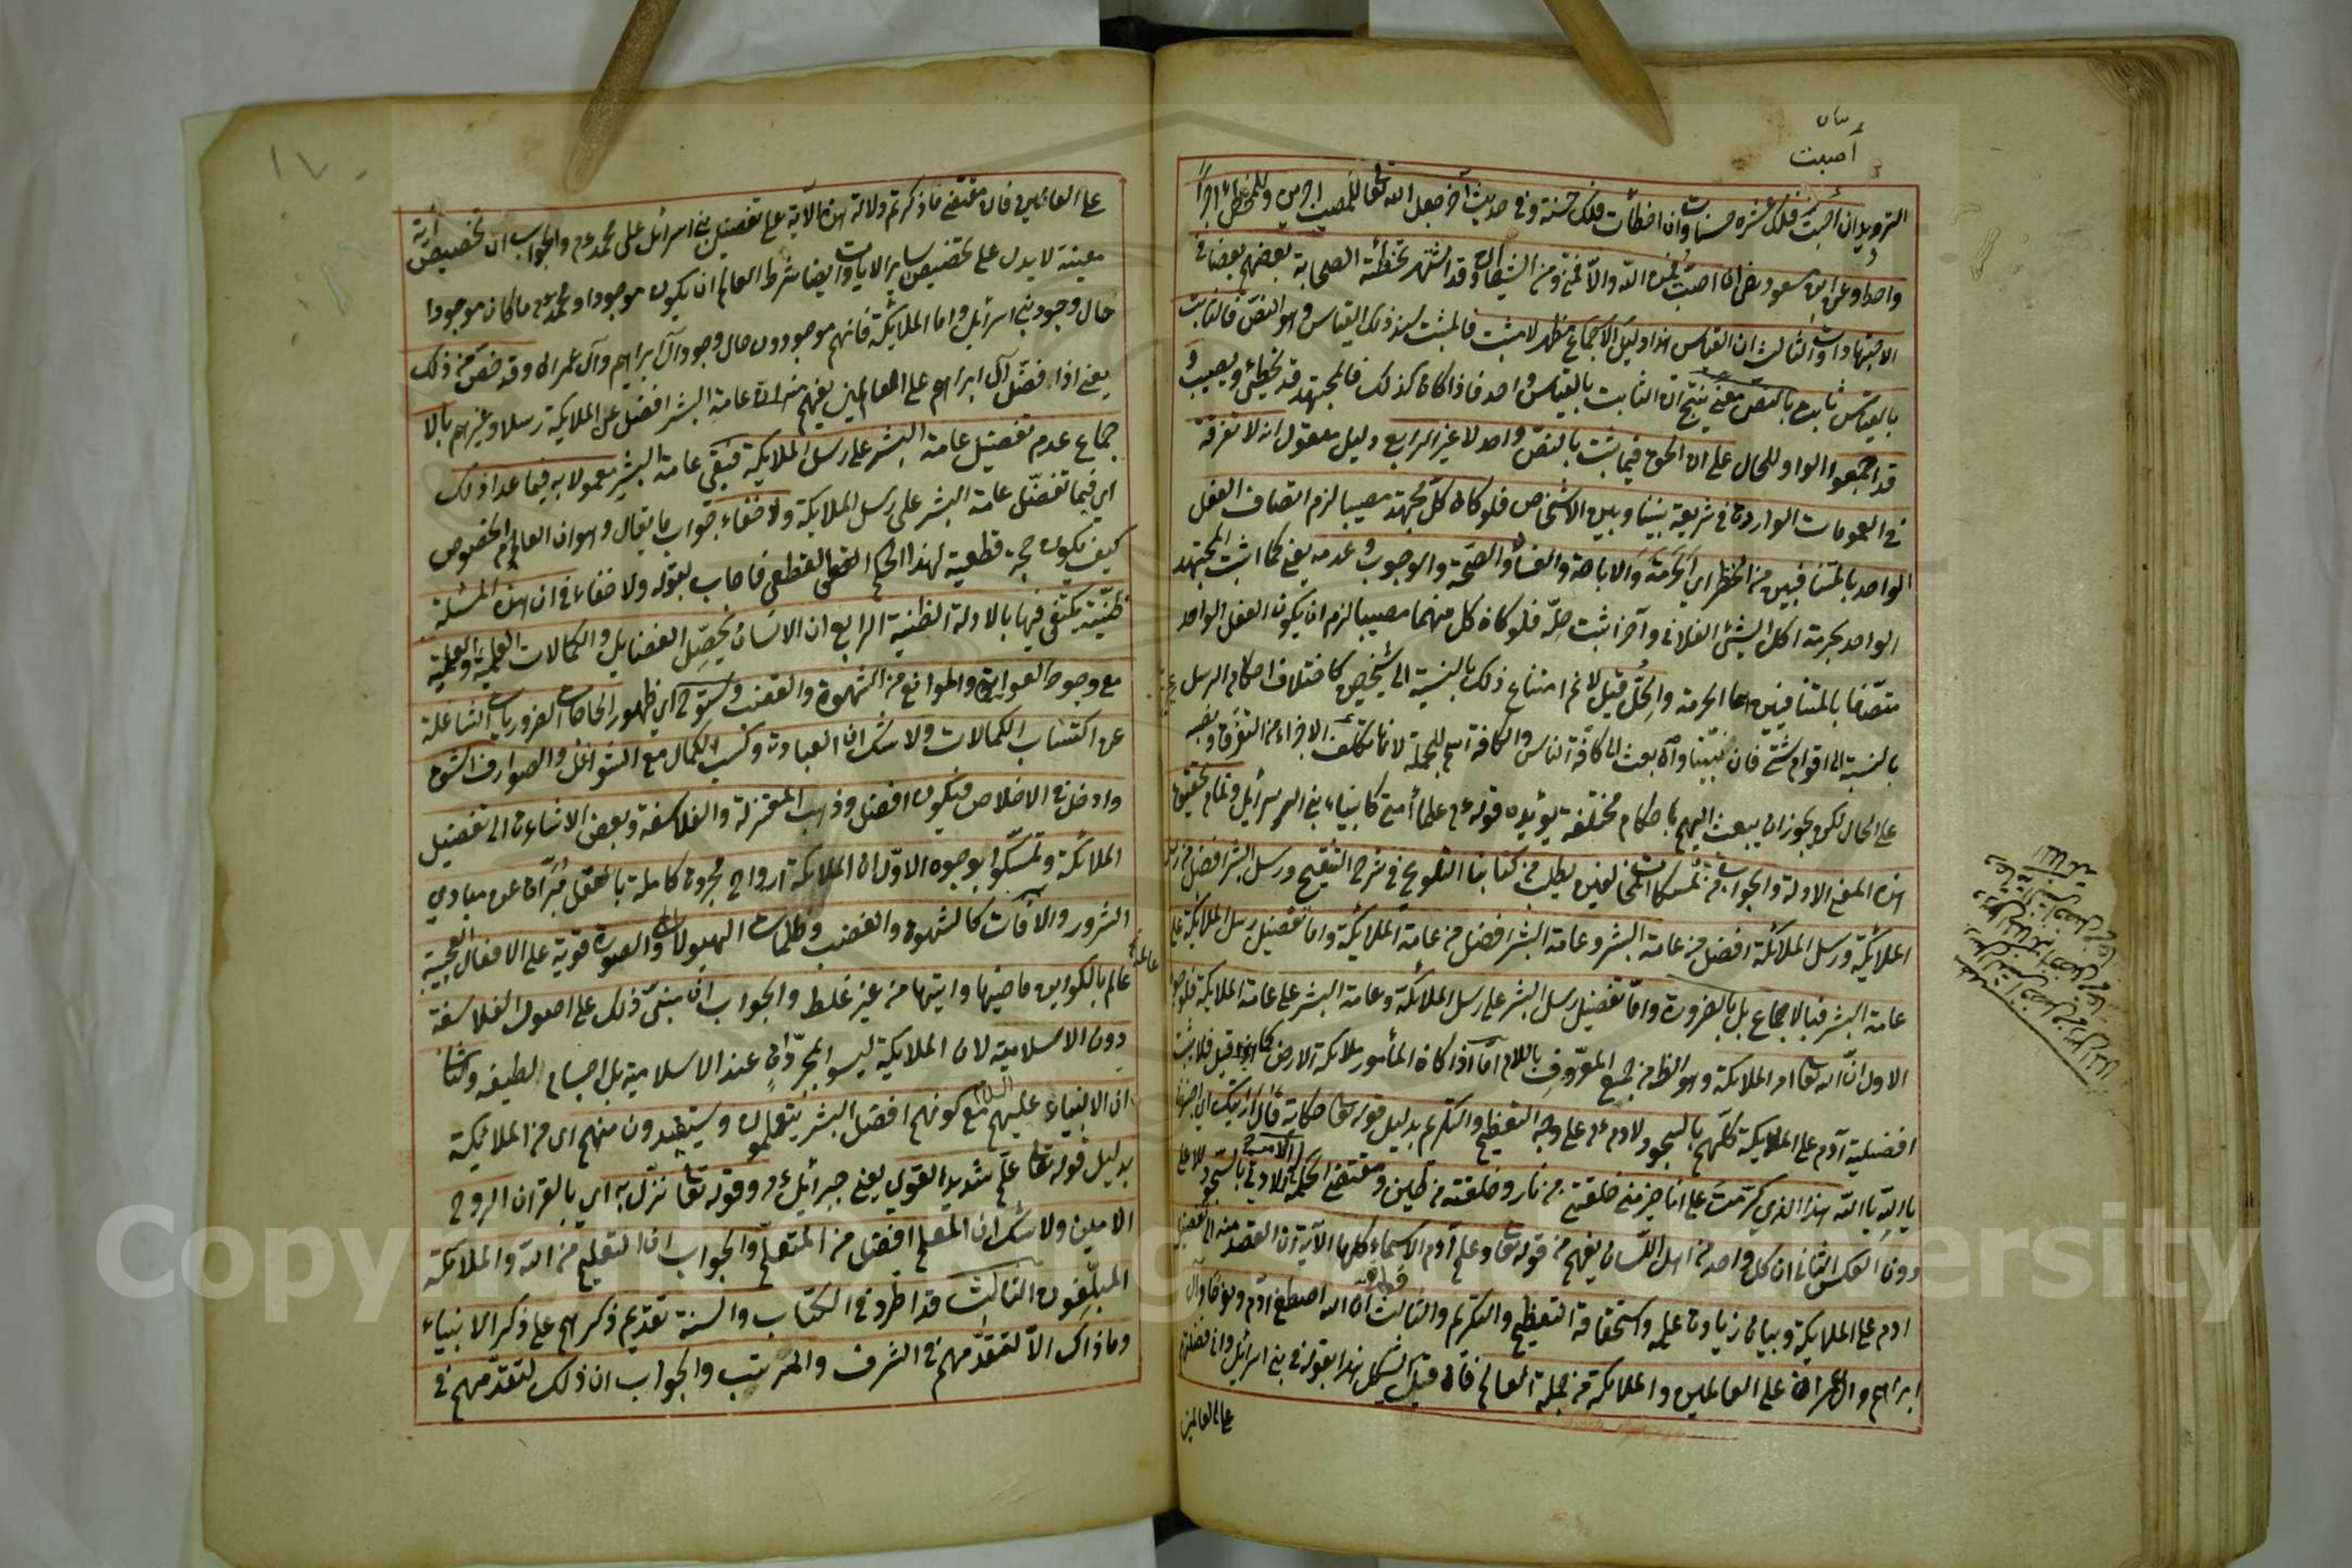 أصبت
الترديد ان اصبت فلك عشره حسنات وان اخطأت فلك حسنة وفي حديث آخر جعل الله تعالى للمصيب اجرين وللمخطئ اجرا
واحدا وعن ابن مسعود رضي ان اصبت فمن الله والا فمني ومن الشيطان وقد اشتهر تخطئة الصحابة بعضهم بعضا في
الاجتهادات والثالث ان القياس هذا دليل الاجماع مظهر لا مثبت فالمثبت لهذ ذلك القياس وهو النص فالثابت
بالقياس ثابت بالنص معنى ينتج ان الثابت بالقياس واحد فاذا كان كذلك فالمجتهد قد يخطئ ويصيب و
قد اجمعوا الواو للحال على ان الحق فيما يثبت بالنص واحد لا غير الرابع دليل معقول انه لا تفرقة
في العمومات الواردة في شريعة نبينا وبين الاشخاص فلو كان كل مجتهد مصيبا لزم اتصاف الفعل
الواحد بالمتنافيين من الحظر اي الحرمة والاباحة والفساد والصحة والوجوب وعدمه يعني كما اثبت المجتهد
الواحد بحرمة اكل الشيئ الفلاني وآخر اثبت حله فلو كان كل منهما مصيبا لزم ان يكون الفعل الواحد
متصفا بالمتنافيين اعا الحرمة والحل قيل لا نم امتناع ذلك بالنسبة الى شخصين كاختلاف احكام الرسل
بالنسبة الى اقوام شتى فان نبينا وان بعث الى كافة الناس والكافة اسم للجملة لانها تكف الاجزاء من التفرق
على الحال لكن يجوز ان يبعث اليهم باحكام مختلفة يؤيده قوله ءم علماء امتي كانبياء بني اسرائيل وتمام تحقيق
هذه المعنى الادلة والجواب من تمسكات المخالفين يطلب من كتابنا التلويح في شرح التنقيح ورسل البشر افضل من رسل
الملائكة ورسل الملائكة افضل من عامة البشر وعامة البشر افضل من عامة الملائكة واما تفضيل رسل الملائكة على
عامة البشر فبالاجماع بل بالضرورة واما تفضيل رسل البشر على رسل الملائكة وعامة البشر على عامة الملائكة فلوجوه
الاول ان الله تعا امر الملائكة وهو الظ من جمع المعروف باللام اما اذا كان المأمور ملائكة الارض كما قيل فلا يثبت
افضلية آدم على الملائكة كلهم بالسجود لادم ءم على وجه التعظيم والتكريم بدليل قوله تعا حكاية قال ارأيتك اي اخبرنا
يا الله يا الله هذا الذي كرمت على انا خير منه خلقتني من نار وخلقته من طين ومقتضى الحكمة الامر للادنى بالسجود للاعلى
دون العكس الثاني ان كل واحد من اهل اللسان يفهم من قوله تعا وعلم آدم الاسماء كلها الآية ان القصد منه الى تفضيل
ادم على الملائكة وبيان زيادة علمه واستحقاقه التعظيم والتكريم والثالث قوله تعا ان الله اصطفى آدم ونوحا وآل
ابراهيم وال عمران على العالمين والملائكة من جملة العالم فان قيل يشكل هذا بقوله في بني اسرائيل واني فضلتكم
على العالمين
على العالمين فان مقتضى ما ذكرتم دلالة هذه الآية على تفضيل بني اسرائيل على محمد ءم والجواب ان تخصيص آية
معينة لا يدل على تخصيص سائر الايات وايضا شرط العالم ان يكون موجودا ومحمد ءم ما كان موجودا
حال وجود بني اسرائيل واما الملائكة فانهم موجودون حال وجود آل ابراهيم وآل عمران وقد خص من ذلك
يعني اذا فضل آل ابراهيم على العالمين يفهم منه ان عامة البشر افضل على الملائكة رسلا وغيرهم بالا
جماع عدم تفضيل عامة البشر على رسل الملائكة فبقي عامة البشر معمولا به فيما عدا ذلك
اي فيما تفضل عامة البشر على رسل الملائكة ولا خفاء جواب ما يقال وهو ان العالم الخصوص
كيف يكون حجة قطعية لهذا الحكم القطعي فاجاب بقوله ولا خفاء في ان هذه المسئلة
ظنية يكتفى فيها بالادلة الظنية الرابع ان الانسان يحصل الفضايل والكمالات العلمية والعملية
مع وجود العوايق والموانع من الشهوة والغضب وسنوح اي ظهور الحاجات الضروريات الشاغلة
عن اكتساب الكمالات ولا شك ان العبادة وكسب الكمال مع الشواغل والصوارف اشق
وادخل في الاخلاص فيكون افضل وذهب المعتزلة والفلاسفة وبعض الاشاعرة الى تفضيل
الملائكة وتمسكوا بوجوه الاول ان الملائكة ارواح مجردة كاملة بالعقل مبرآة عن مبادي
الشرور والآفات كالشهوة والغضب وظلمات الهيولات والصورة قوية على الافعال العجيبة
عالم بالكواين ماضيها وآتيها من غير غلط والجواب ان مبنى ذلك على اصول الفلاسفة
دون الاسلامية لان الملائكة ليسوا بمجردات عند الاسلامية بل اجسام لطيفه والثاني
ان الانبياء عليهم السلام مع كونهم افضل البشر يتعلمون ويستفيدون منهم اى من الملائكة
بدليل قوله تعا علمه شديد القوى يعني جبرائيل ءم وقوله تعا نزل به اي بالقرآن الروح
الامين ولا شك ان المعلم افضل من المتعلم والجواب ان التعليم من الله والملائكة
المبلغون الثالث قد اطرد في الكتاب والسنة تقديم ذكرهم على ذكر الانبياء
وما ذاك الا لتقدمهم في الشرف والمرتبت والجواب ان ذلك لتقدمهم في